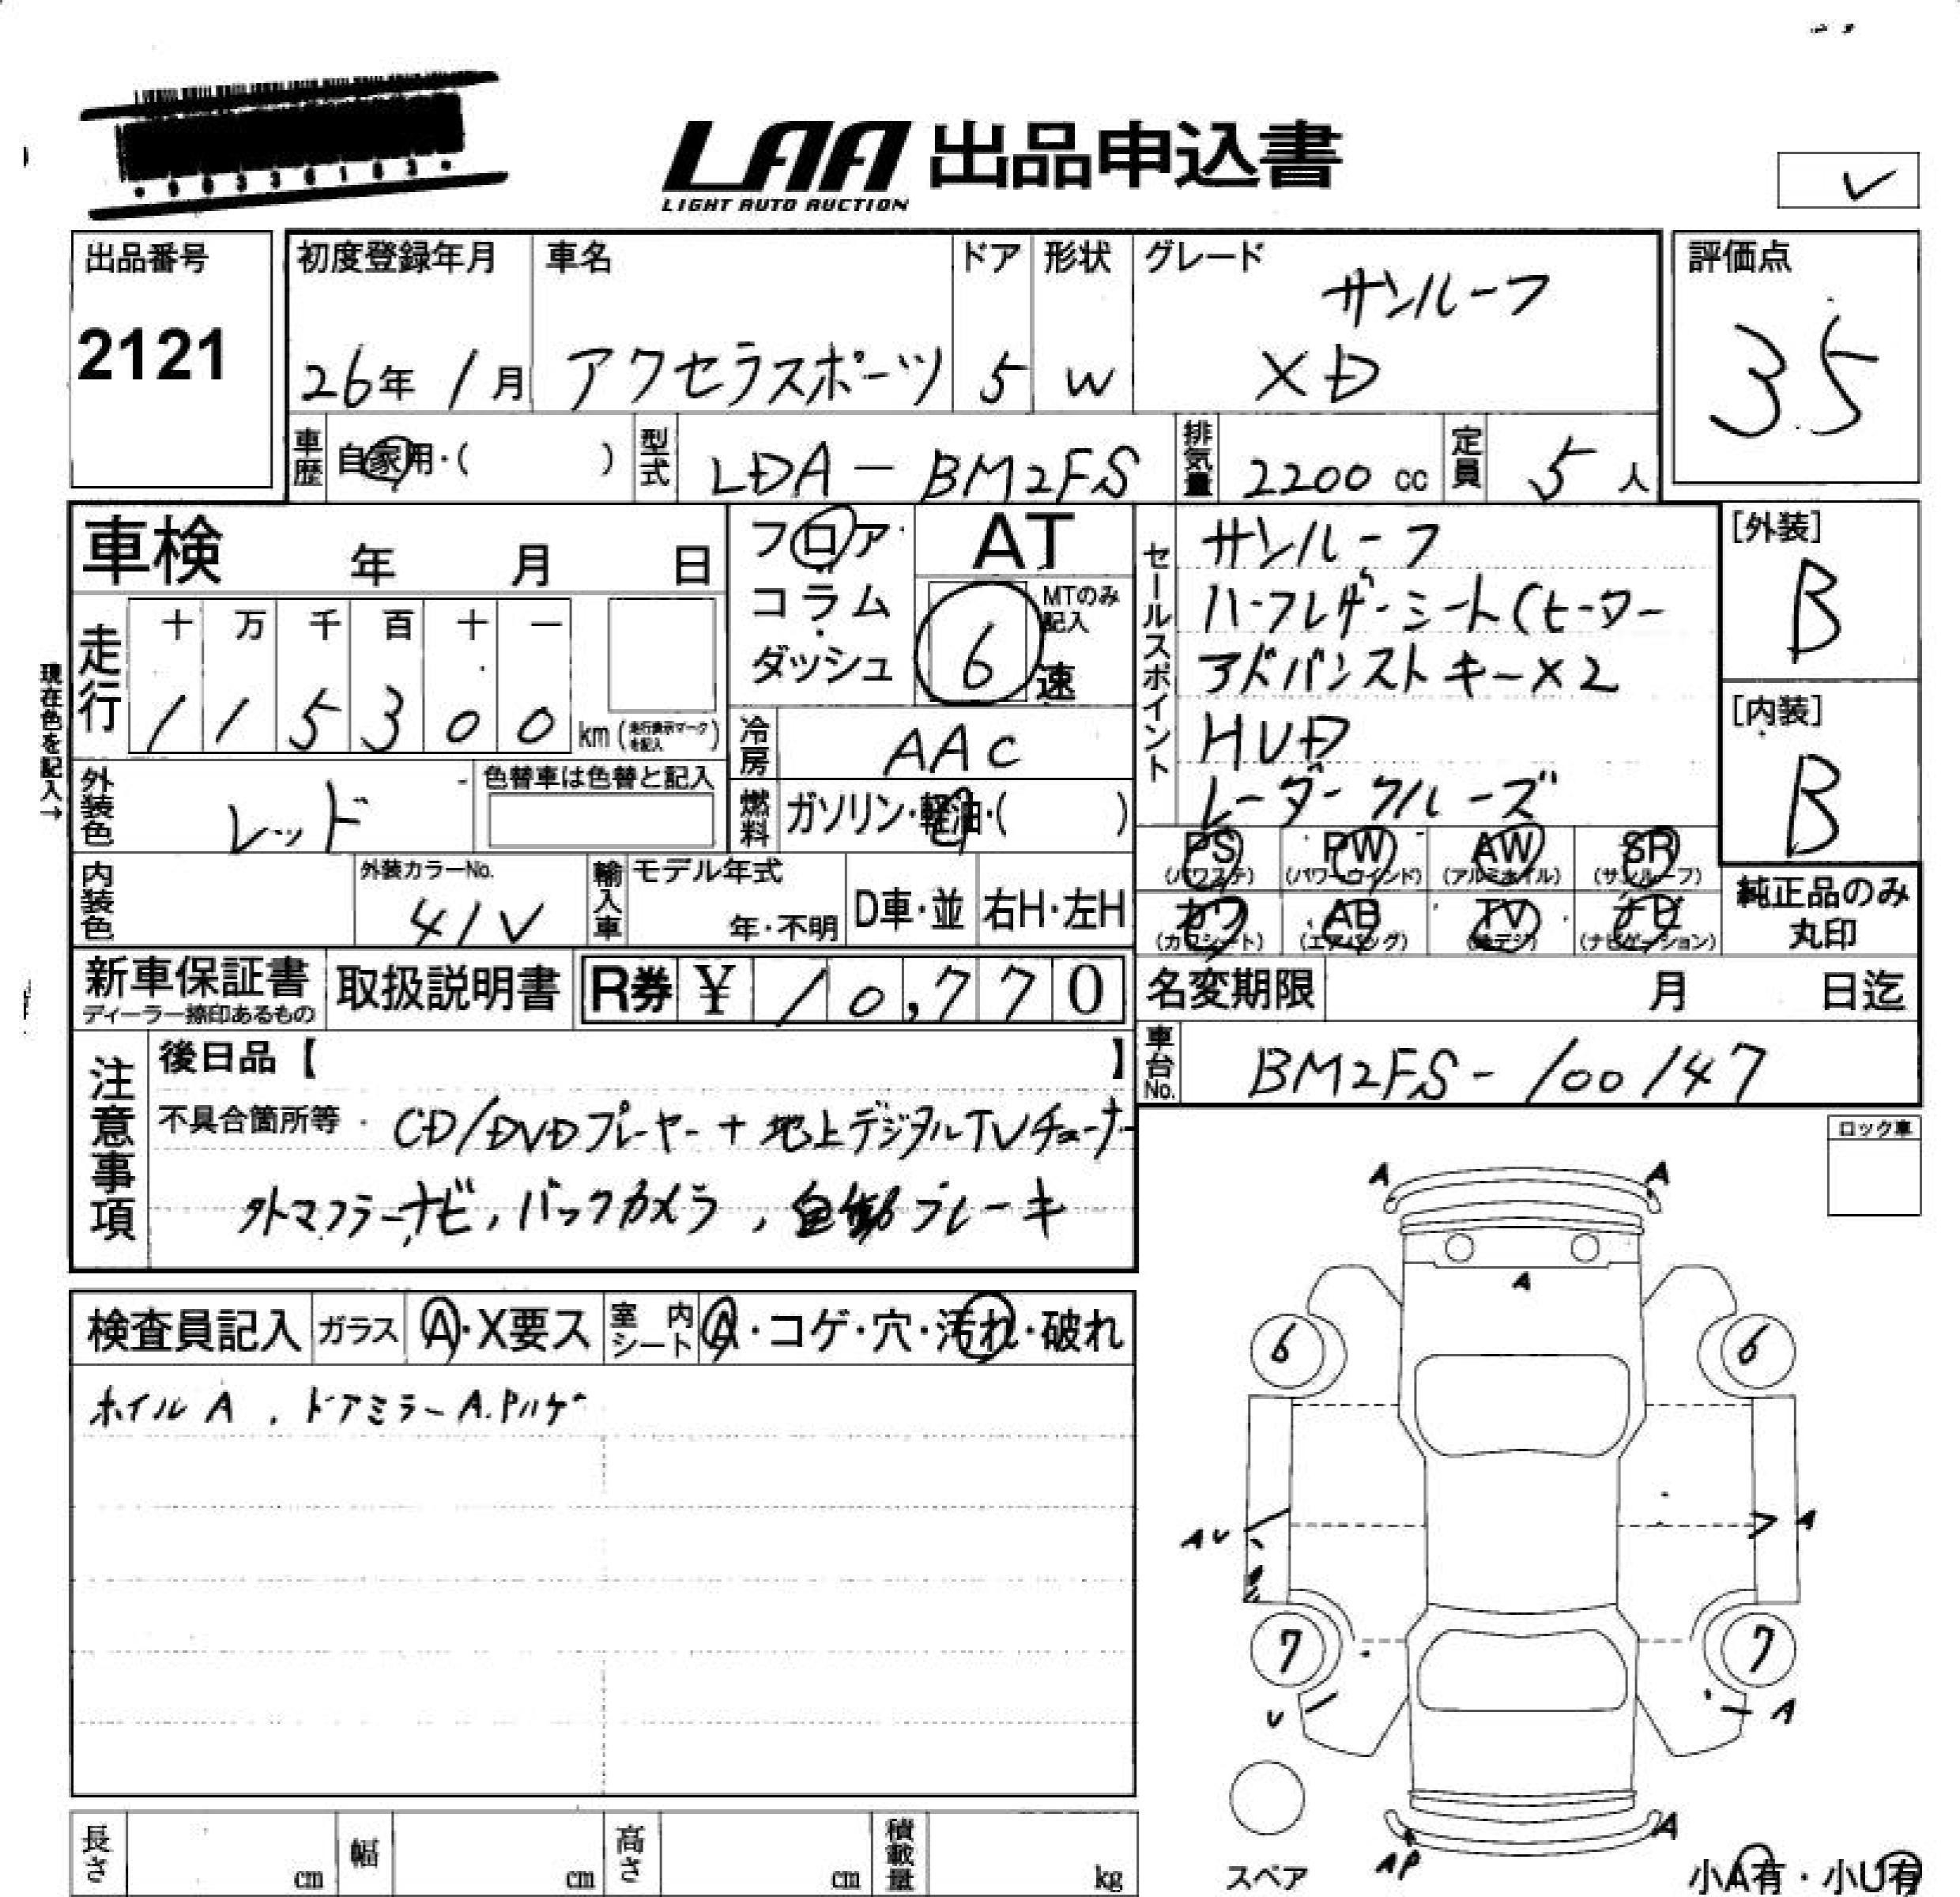 LAA 出品申込書
LIGHT AUTO AUCTION
出品番号
2121
初度登録年月
26年 1月
車名
アクセラスポーツ
ドア
5
形状
W
グレード
サンルーフ
XD
評価点
3.5
車歴 自家用・( )
型式 LDA-BM2FS
排気量 2200 cc
定員 5 人
車検 年 月 日
現在色を記入→
走行
十 万 千 百 十 一
1 1 5 3 0 0 km (走行表示マークを記入)
外装色 レッド
色替車は色替と記入
内装色
外装カラーNo.
41V
フロア・
コラム・
ダッシュ
AT
6速
MTのみ記入
冷房 AAC
燃料 ガソリン・軽油・( )
輸入車
モデル年式
年・不明
D車・並
右H・左H
セールスポイント
サンルーフ
ハーフレザーシート(ヒーター
アドバンストキー×2
HUD
レーダークルーズ
[外装]
B
[内装]
B
PS (パワステ)
PW (パワーウインド)
AW (アルミホイル)
SR (サンルーフ)
カワ (カワシート)
AB (エアバッグ)
TV (地デジ)
ナビ (ナビゲーション)
純正品のみ
丸印
新車保証書
ディーラー捺印あるもの
取扱説明書
R券 ¥ 10,770
名変期限 月 日迄
車台No. BM2FS-100147
注意事項
後日品【 】
不具合箇所等 CD/DVDプレーヤー+地上デジタルTVチューナー
外マフラーナビ,バックカメラ,自動ブレーキ
ロック車
検査員記入
ガラス A・X要ス
室内シート A・コゲ・穴・汚れ・破れ
ホイルA、ドアミラーA.Pハゲ
A A
A
6 6
AU A
7 7
U A
A
AP
スペア
小A有・小U有
長さ cm
幅 cm
高さ cm
積載量 kg